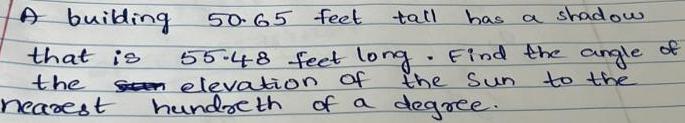 A building 50.65 feet tall has a shadow
that is 55.48 feet long. Find the angle of
the elevation of the Sun to the
nearest hundreth of a degree.